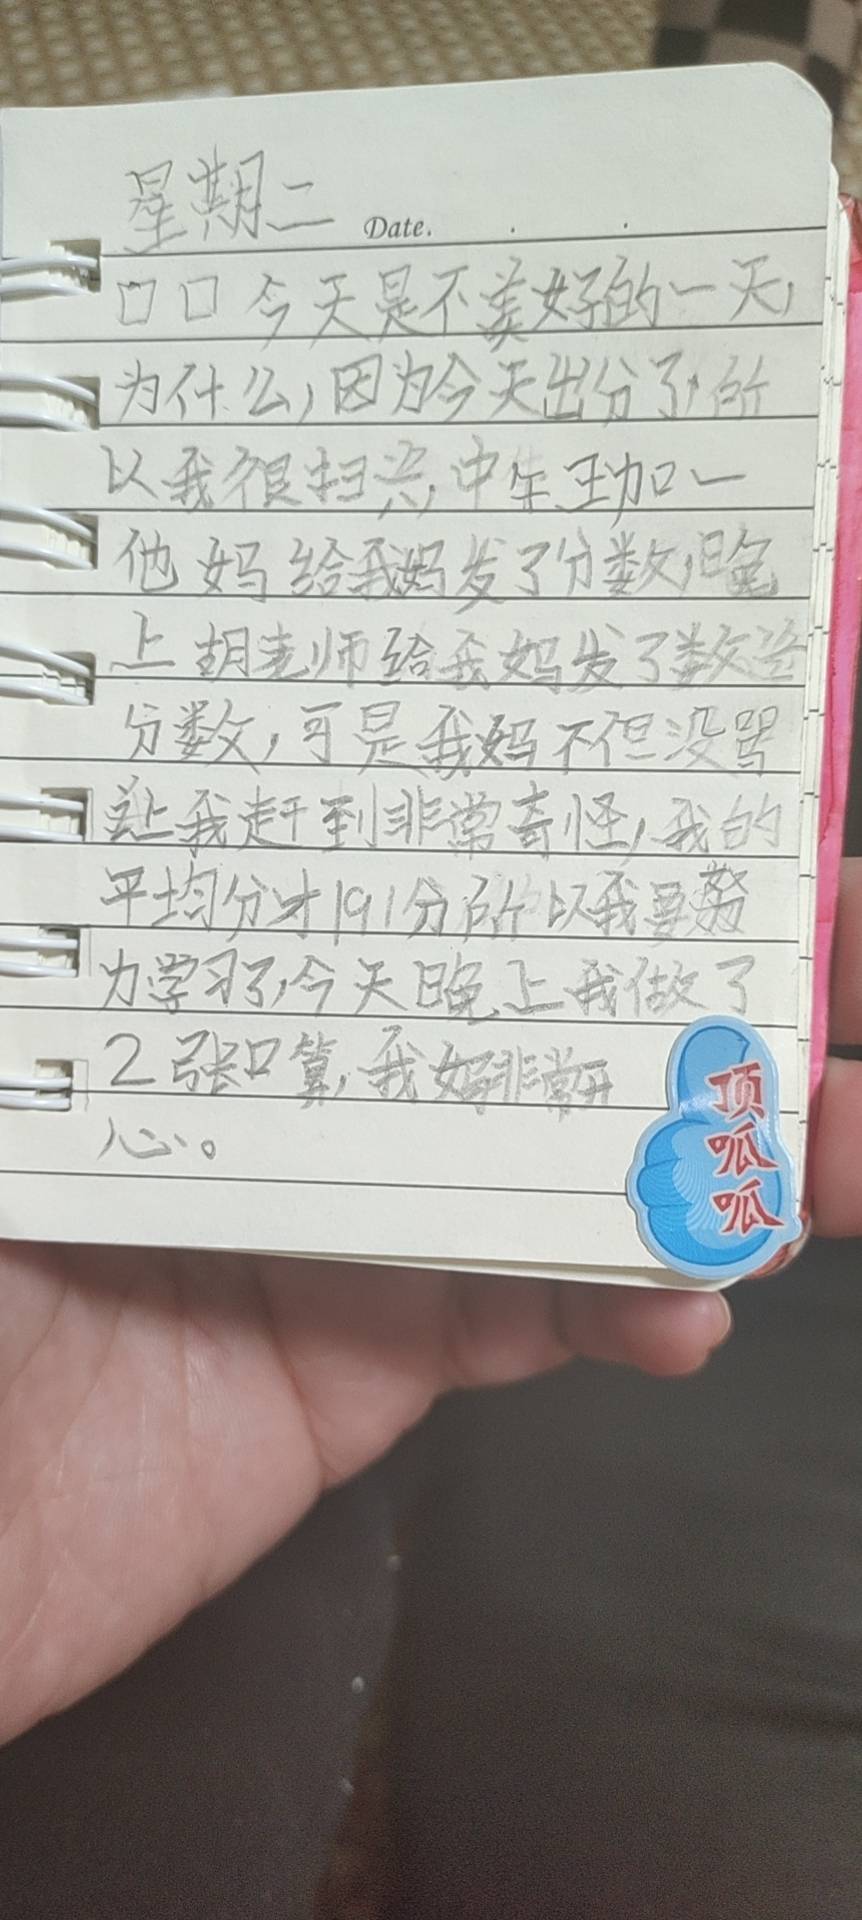 星期二
Date.
口口今天是不美好的一天,
为什么,因为今天出分了,所
以我很扫兴,中午王加一
他妈给我妈发了分数,晚
上胡老师给我妈发了数学
分数,可是我妈不但没骂
让我赶到非常奇怪,我的
平均分才191分所以我要努
力学习了,今天晚上我做了
2张口算,我妈非常开
心。
顶
呱
呱